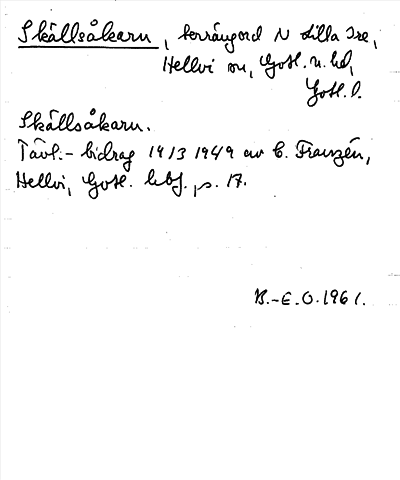 Skällsåkarn, terrängord N Lilla Ire,
Hellvi sn, Gotl. n. hd,
Gotl. l.
Skällsåkarn.
Tävl.- bidrag 19/3 1949 av C. Franzén,
Hellvi, Gotl. hbf., s. 17.
B.-E.O. 1961.